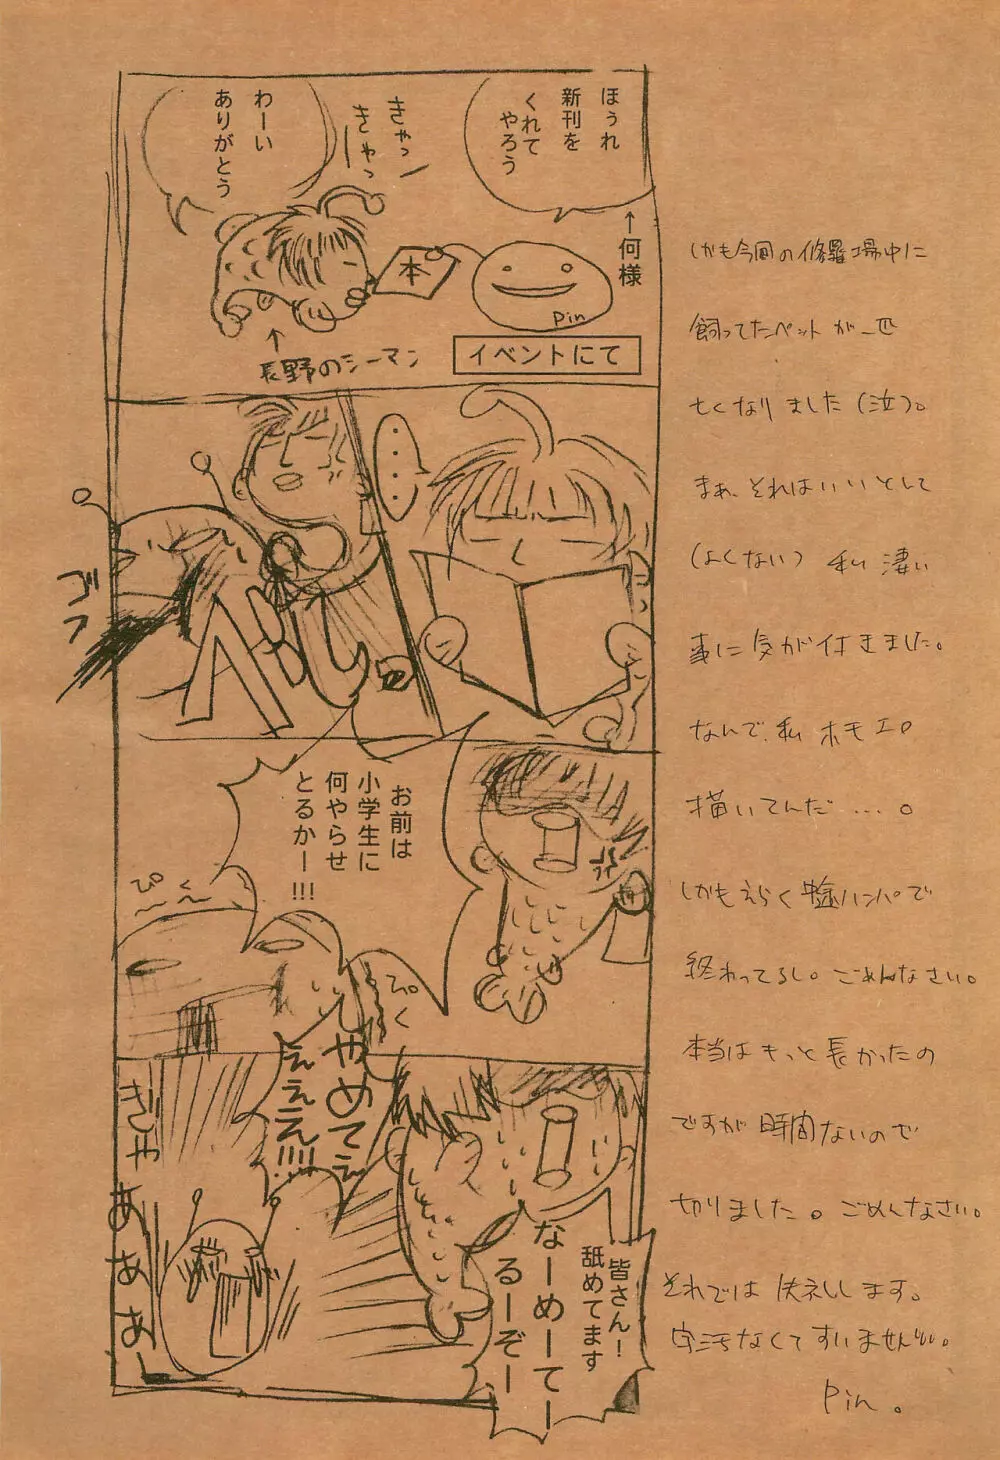 ほぅれ
新刊を
くれて
やろう
↑何様
きゃっ
きゃっ
わーい
ありがとう
本
pin
↑
長野のシーマン
イベントにて
‥‥
ゴフ
お前は
小学生に
何やらせ
とるかー!!!
ぴく
ぴく
やめてぇ
ぇぇえ!!!!
ぎゃああああー
皆さん!
舐めてます
なーめーてー
るーぞー
しかも今回の修羅場中に
飼ってたペットが一匹
亡くなりました(泣)。
まぁ、それはいいとして
(よくない) 私 凄い
事に気が付きました。
なんで、私 ホモエロ
描いてんだ‥‥。
しかもえらく中途ハンパで
終わってるし。ごめんなさい。
本当はもっと長かったの
ですが時間ないので
切りました。ごめんなさい。
それでは 失礼します。
字汚なくてすいません。
Pin。